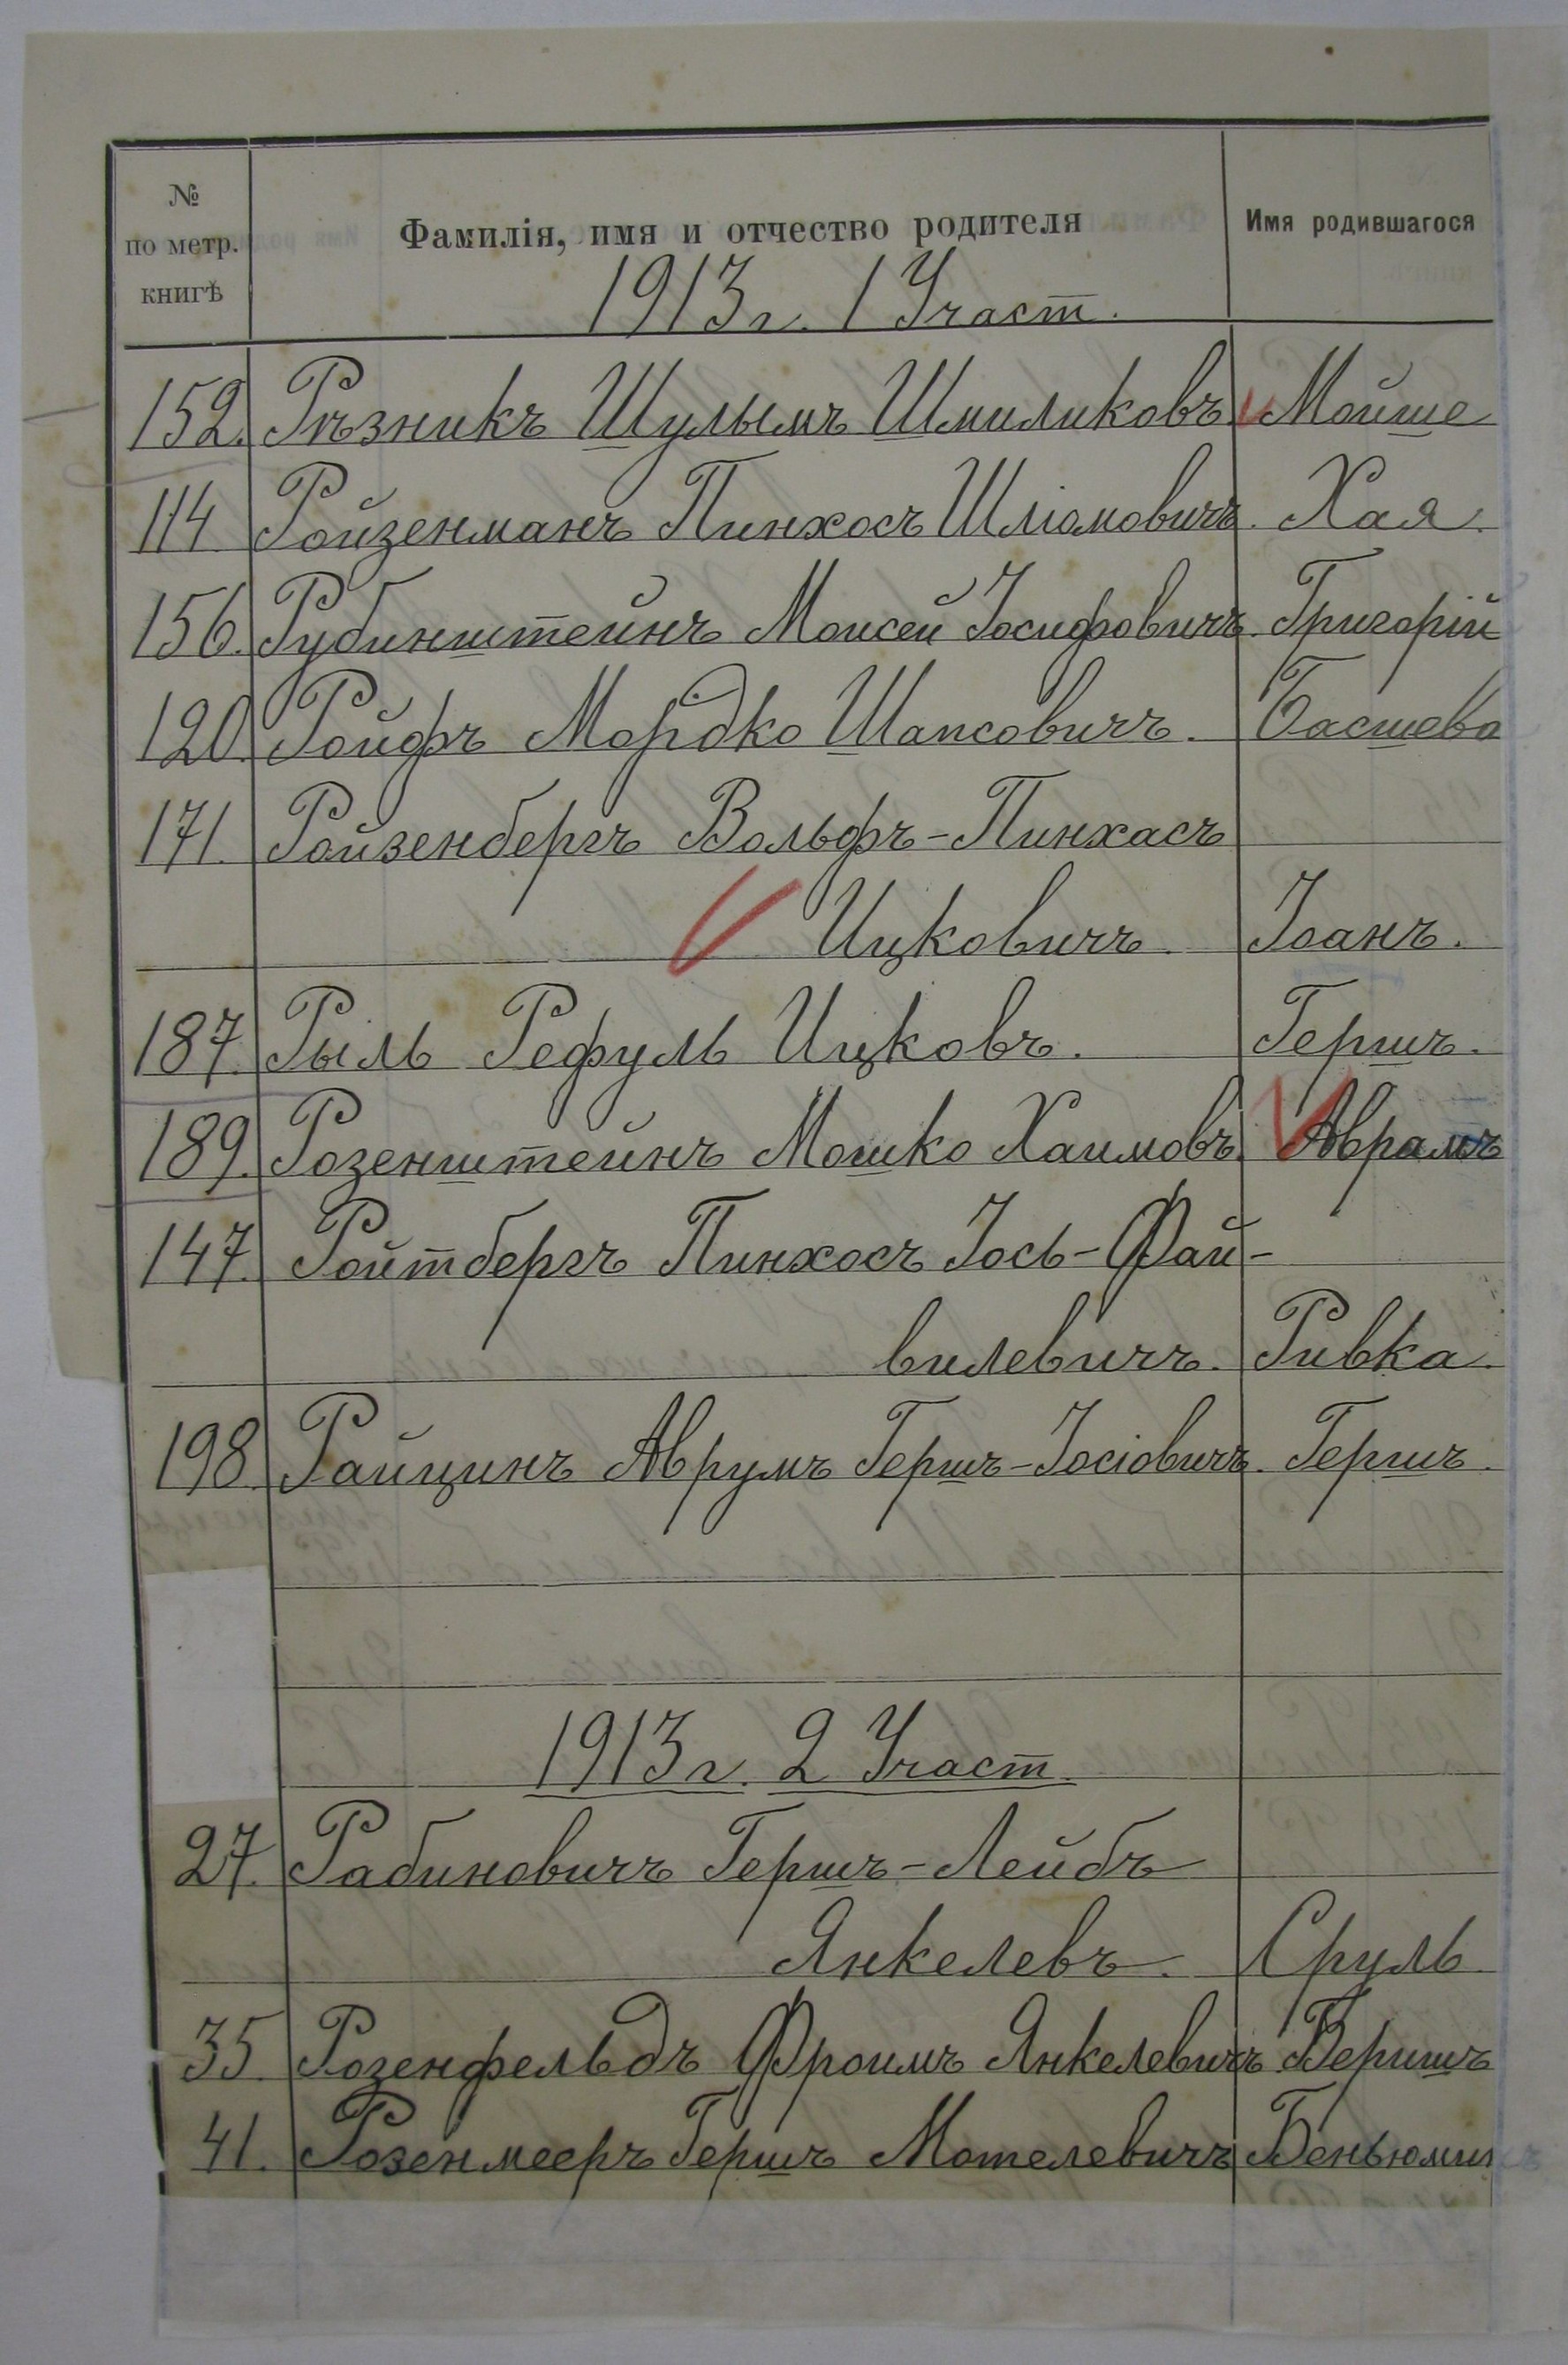 №
по метр.
книгѣ
Фамилія, имя и отчество родителя
Имя родившагося
1913 г. 1 Участ.
152. Рѣзникъ Шулымъ Шмиликовъ. Мойше
114. Ройзенманъ Пинхосъ Шліомовичъ. Хая.
156. Рубинштейнъ Моисей Іосифовичъ. Григорій
120. Ройфъ Мордко Шапсовичъ. Басшева
171. Ройзенбергъ Вольфъ-Пинхасъ
Ицковичъ. Іоанъ.
187. Рыль Рефуль Ицковъ. Гершъ.
189. Розенштейнъ Мошко Хаимовъ. Аврамъ
147. Ройтбергъ Пинхосъ Іось-Фай-
вилевичъ. Ривка.
198. Райцинъ Аврумъ Гершъ-Іосіовичъ. Гершъ.
1913 г. 2 Участ.
27. Рабиновичъ Гершъ-Лейбъ
Янкелевъ. Сруль.
35. Розенфельдъ Фроимъ Янкелевичъ Беришъ
41. Розенмееръ Гершъ Мотелевичъ Беньюмин